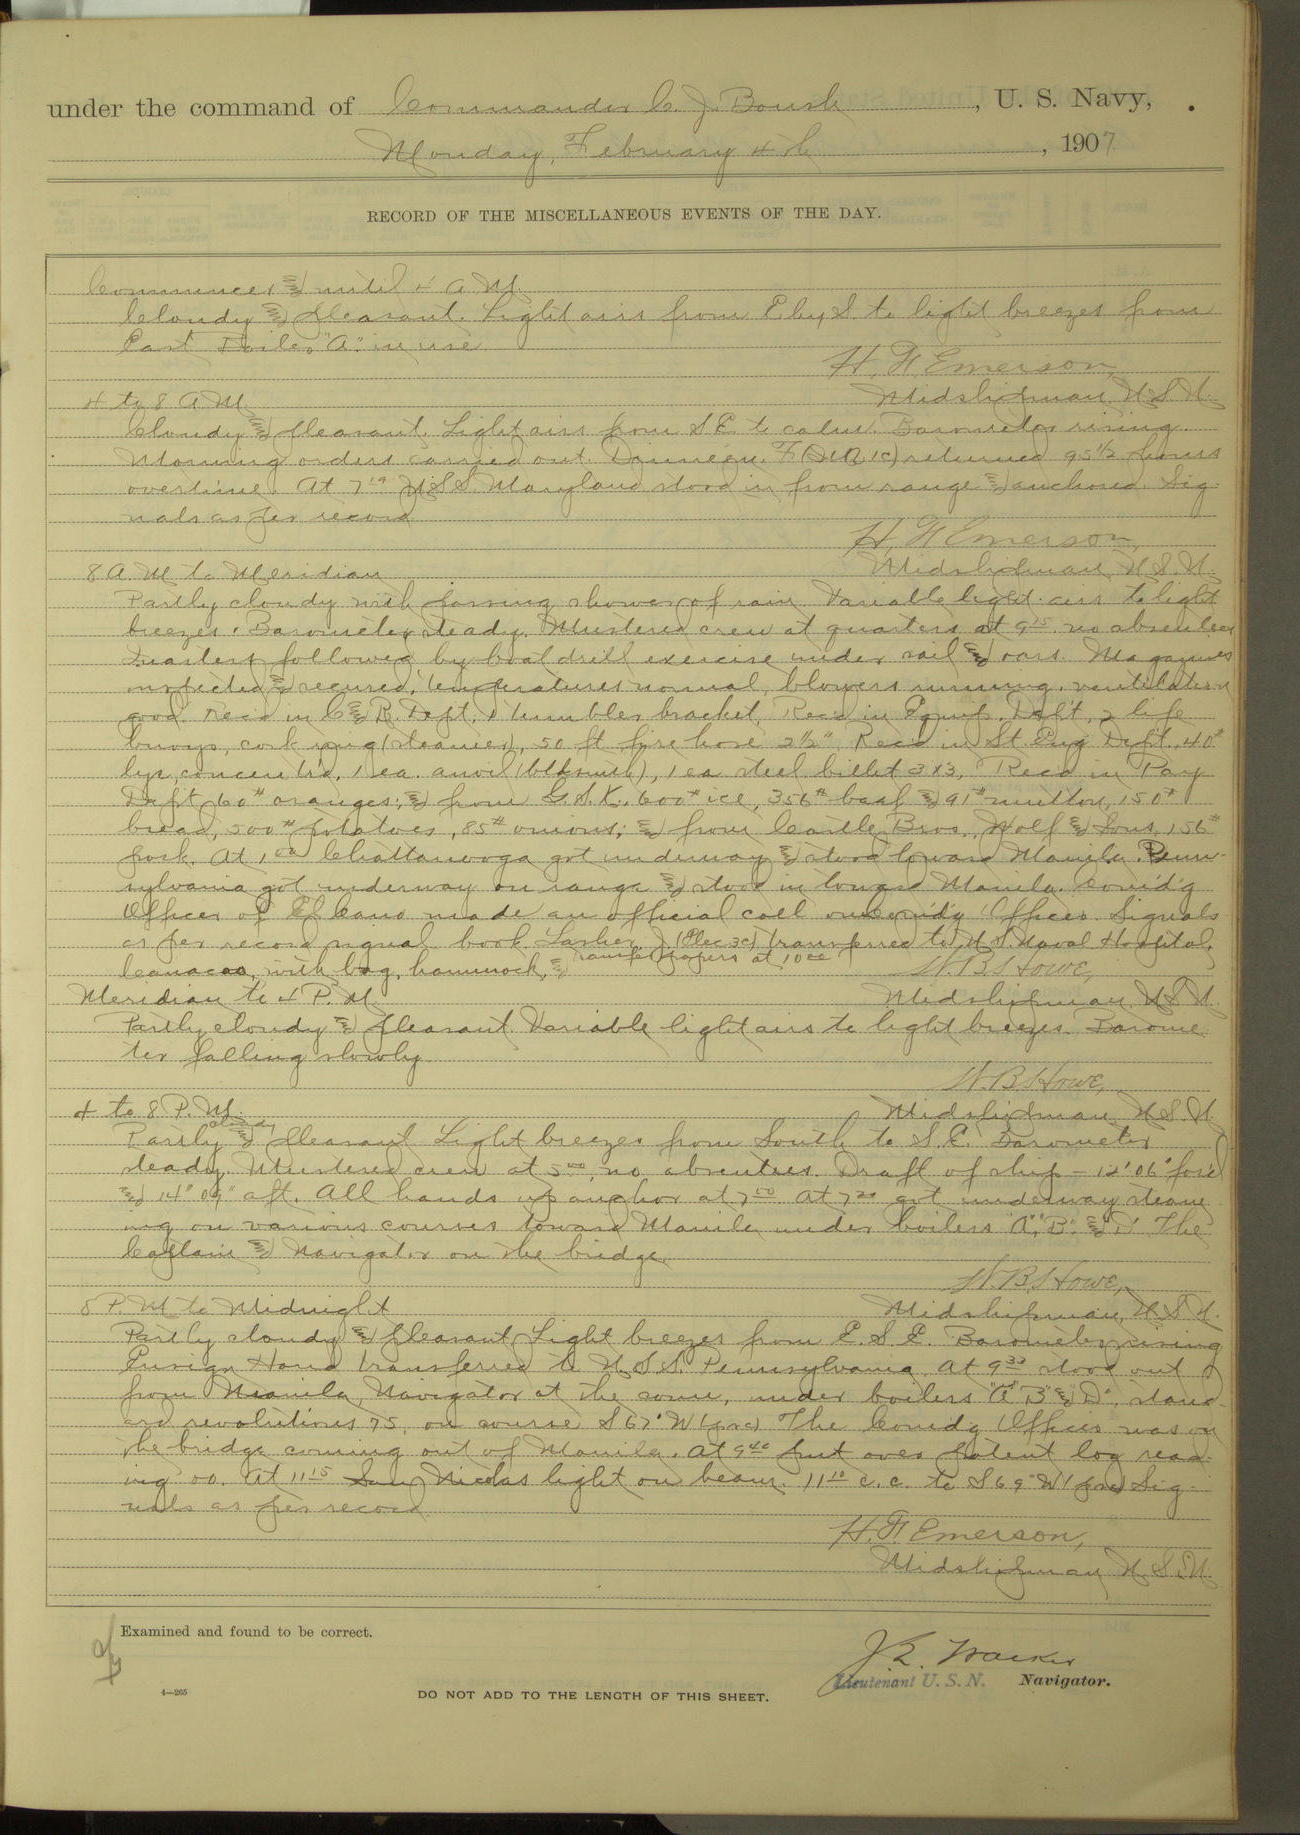 under the command of Commander C. J. Boush, U. S. Navy,
Monday, February 4th, 1907
RECORD OF THE MISCELLANEOUS EVENTS OF THE DAY.
Commences & until 4 A M.
Cloudy & pleasant. Light airs from E by S. to light breezes from
East Boiler "A" in use
H. F. Emerson,
Midshipman, U. S. N.
4 to 8 A M
Cloudy & pleasant. Light airs from S E. to calm. Barometer rising.
Morning orders carried out. F returned 95 1/2 hours
overtime. At 7 19 U.S.S. Maryland stood in from range & anchored. Sig
nals as per record
H. F. Emerson,
Midshipman, U. S. N.
8 A. M to Meridian
Partly cloudy with passing shower of rain. Variable light airs to light
breezes. Barometer steady. Mustered crew at quarters at 9 15 no absentees
Quarters followed by boat drill exercise under sail & oars. Magazines
inspected & secured, temperatures normal, blowers running, ventilation
good. Rec'd in C & R. Dept., 1 tumbler bracket, Rec'd in Equip. Dept, 2 life
buoys, cork ring (steamer), 50 ft fire hose 2 1/2", Rec'd in St Eng Dept. 40#
lye, concent'd, 1 ea. anvil (blksmith), 1 ea steel billet 3x3, Rec'd in Pay
Dept 60# oranges; & from G. S. K., 600# ice, 356# beef & 91# mutton, 150#
bread, 500# potatoes, 85# onions; & from Castle Bros., Wolf & Sons, 156#
pork. At 1 Chattanooga got underway & stood toward Manila. Penn-
sylvania got underway on range & stood in toward Manila. Comd'g
Officer of El Cano made an official call on Comd'g Officer. Signals
as per record signal book. Lasher, J. (Elec 3c) transferred to U. S. Naval Hospital,
Canacao, with bag, hammock, & transfer papers at 10 00
W. B. Howe,
Midshipman, U. S. N.
Meridian to 4 P. M.
Partly cloudy & pleasant. Variable light airs to light breezes. Barome
ter falling slowly
W. B. Howe,
Midshipman, U. S. N.
4 to 8 P. M.
Partly cloudy & pleasant. Light breezes from South to S. E. Barometer
steady. Mustered crew at 5 00, no absentees. Draft of ship - 12' 06" for'd
& 14' 09" aft. All hands up anchor at 7 20 At 7 20 got underway steam
ing on various courses toward Manila under boilers "A", "B" & "D". The
Captain & Navigator on the bridge.
W. B. Howe,
Midshipman, U. S. N.
8 P. M to Midnight
Partly cloudy & pleasant. Light breezes from E. S. E. Barometer rising
Ensign transferred to U. S. S. Pennsylvania. At 9 33 stood out
from Manila, Navigator at the conn, under boilers "A" "B" & "D", stand-
ard revolutions 75, on course S 67° W (psc) The Comdg Officer was on
the bridge coming out of Manila. At 9 40 put over patent log read-
ing 00. At 11 15 San Nicolas light on beam. 11 10 c. c. to S 69° W (psc) Sig-
nals as per record
H. F. Emerson,
Midshipman U. S. N.
Examined and found to be correct.
Lieutenant U. S. N. Navigator.
4—265
DO NOT ADD TO THE LENGTH OF THIS SHEET.